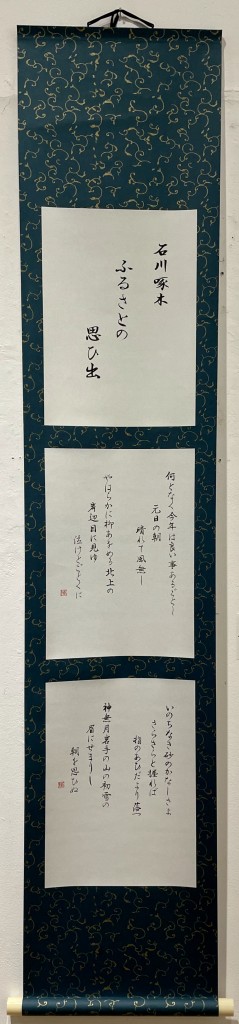 石川啄木
ふるさとの
思ひ出
何となく今年は良い事あるごとし
元日の朝
晴れて風無し
やはらかに柳あをめる北上の
岸辺目に見ゆ
泣けとごとくに
いのちなき砂のかなしさよ
さらさらと握れば
指のあひだより落つ
神無月岩手の山の初雪の
眉にせまりし
朝を思ひぬ